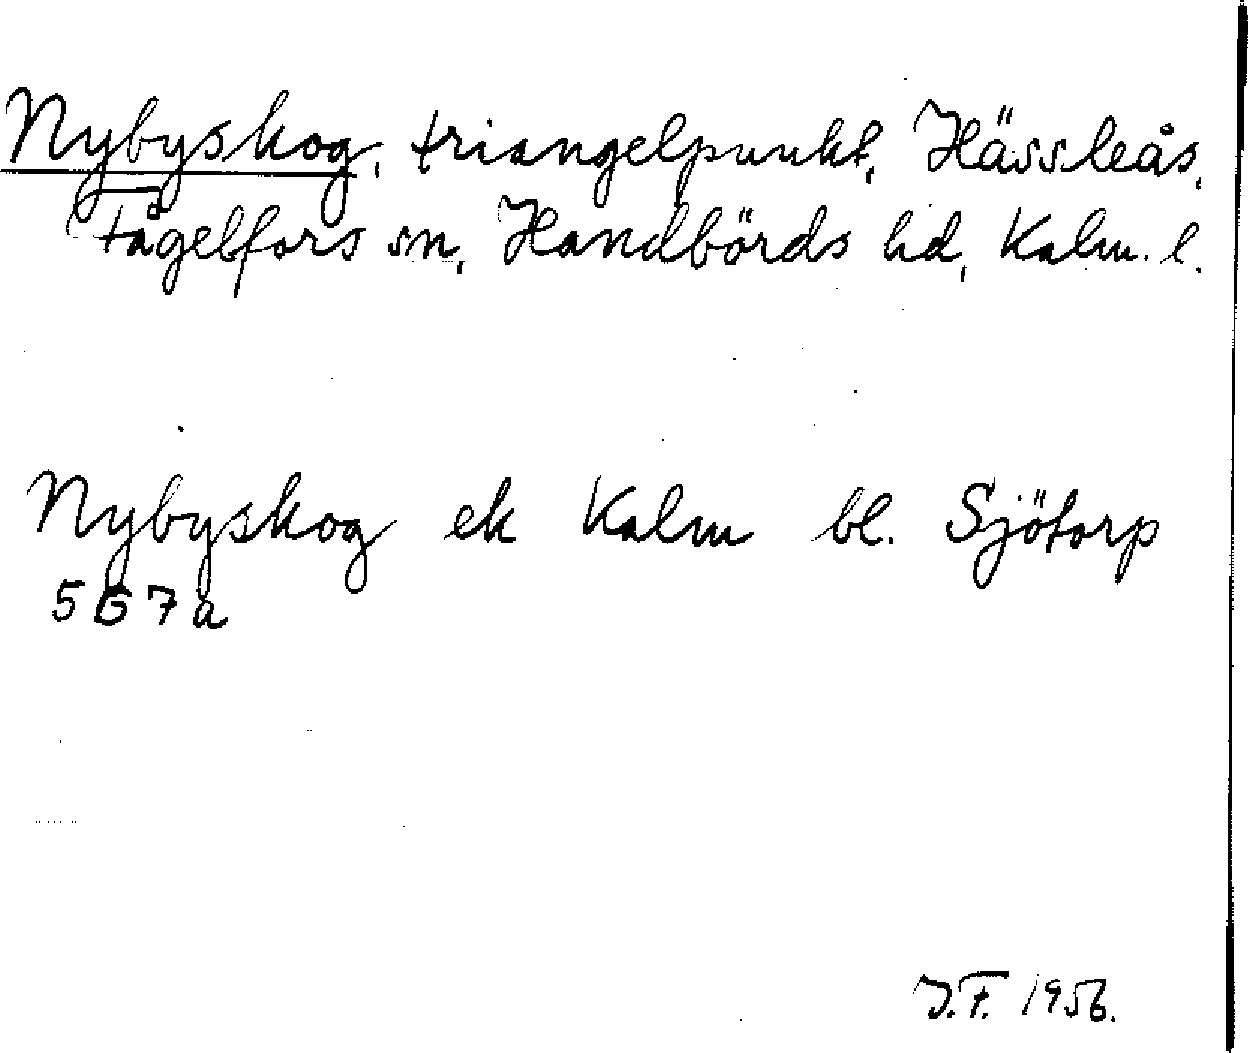 Nybyskog, triangelpunkt, Hässleås,
Fågelfors sn, Handbörds hd, Kalm. l.
Nybyskog ek Kalm bl. Sjötorp
567a
J.F. 1956.